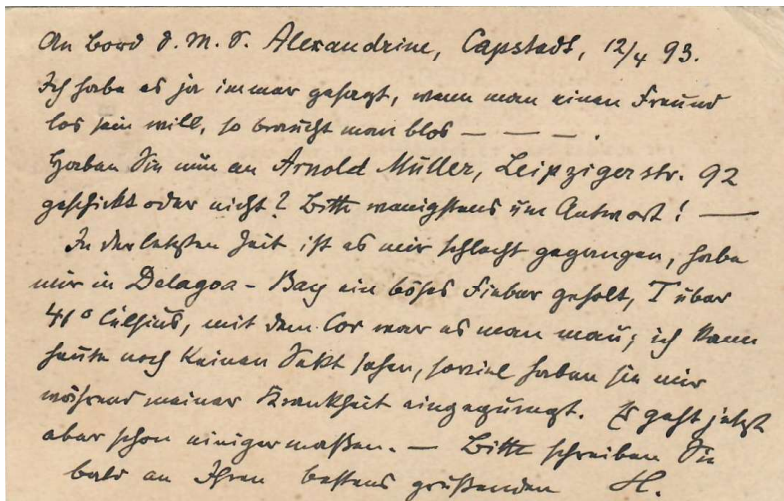 An Bord S. M. S. Alexandrine, Capstadt, 12/4 93.
Ich habe es ja immer gesagt, wenn man einen Freund
los sein will, so braucht man blos — — — .
Haben Sie nun an Arnold Müller, Leipzigerstr. 92
geschickt oder nicht? Bitte wenigstens um Antwort! —
In der letzten Zeit ist es mir schlecht gegangen, habe
mir in Delagoa-Bay ein böses Fieber geholt, T über
41° Celsius, mit dem Cor war es man mau; ich kann
heute noch keinen Sekt sehen, soviel haben sie mir
während meiner Krankheit eingepumpt. Es geht jetzt
aber schon einigermaßen. — Bitte schreiben Sie
bald an Ihren bestens grüßenden H.